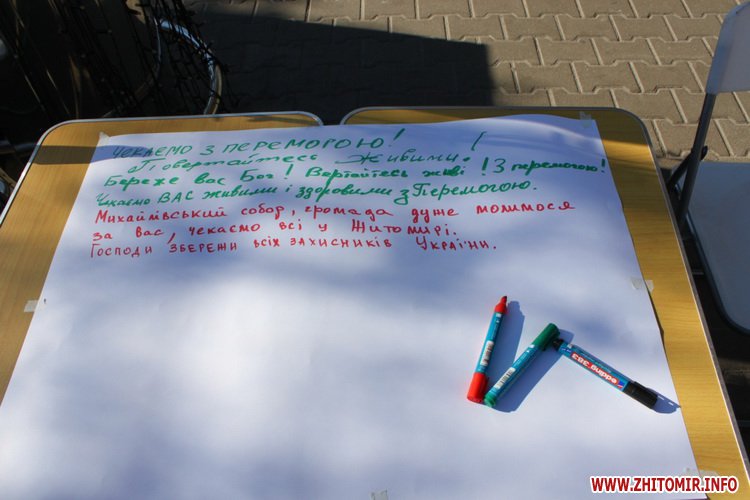 ЧЕКАЄМО З ПЕРЕМОГОЮ!
Повертайтесь Живими.
Береже вас Бог! Вертайтесь живі! З перемогою!
Чекаємо ВАС живими і здоровими з Перемогою.
Михайлівський собор, громада дуже молимося
за вас, чекаємо всі у Житомирі.
Господи збережи всіх захисників України.
edding 383
WWW.ZHITOMIR.INFO